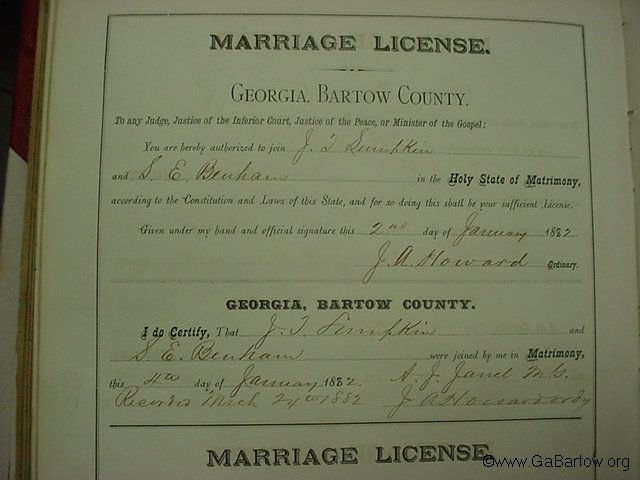 MARRIAGE LICENSE.
GEORGIA, BARTOW COUNTY.
To any Judge, Justice of the Inferior Court, Justice of the Peace, or Minister of the Gospel:
You are hereby authorized to join J. T. Lumpkin
and S. E. Benham in the Holy State of Matrimony,
according to the Constitution and Laws of this State, and for so doing this shall be your sufficient License.
Given under my hand and official signature this 2nd day of January 1882
J. A. Howard Ordinary.
GEORGIA, BARTOW COUNTY.
I do Certify, That J. T. Lumpkin and
S. E. Benham were joined by me in Matrimony,
this 4th day of January 1882. A. J. M.G.
Recorded March 24th 1882 J A Howard ordy
MARRIAGE LICENSE
©www.GaBartow.org